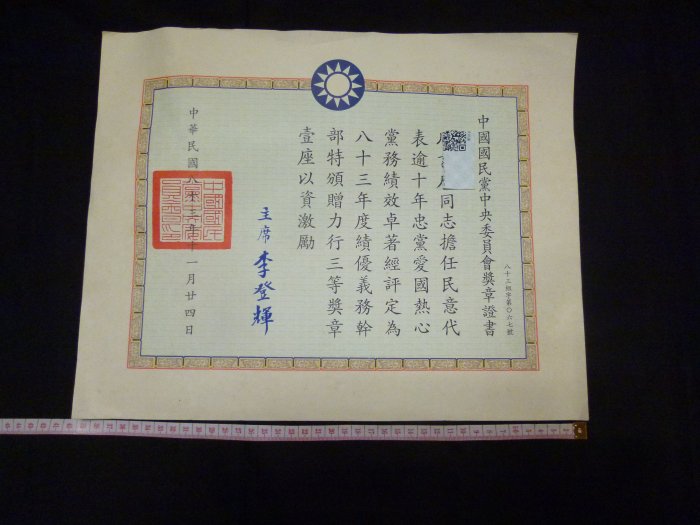 中國國民黨中央委員會獎章證書
八十三組字第〇六七號
同志擔任民意代
表逾十年忠黨愛國熱心
黨務績效卓著經評定為
八十三年度績優義務幹
部特頒贈力行三等獎章
壹座以資激勵
主席 李登輝
中華民國八十三年十一月廿四日